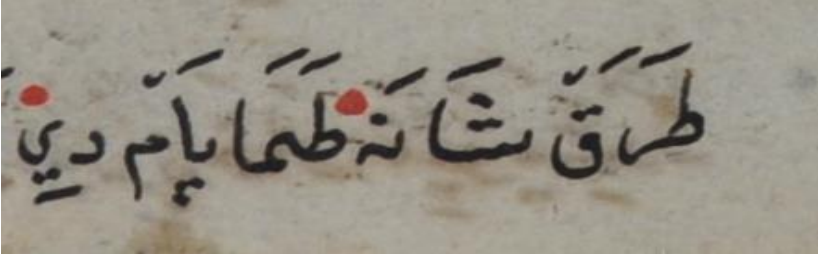 طَرَقّ شَانَه طَهَمَا يَامّ دِي